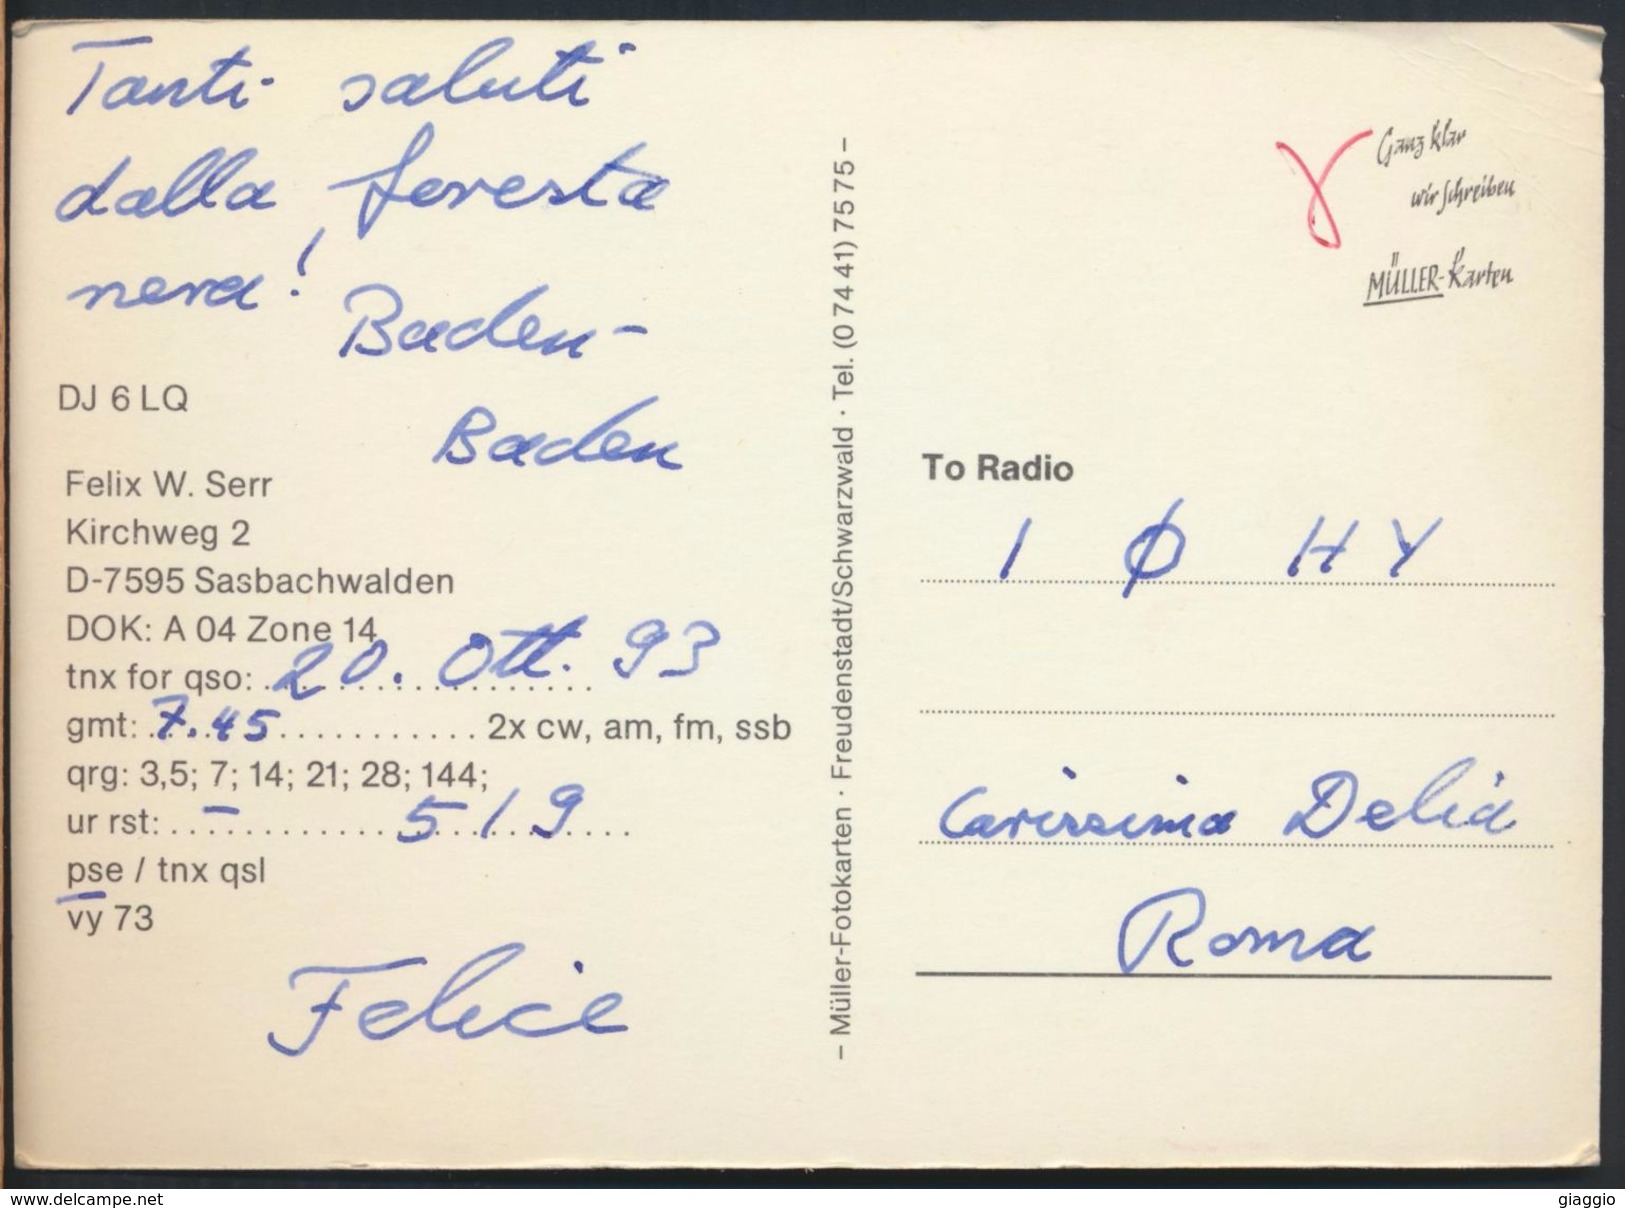 Tanti saluti
dalla foresta
nera!
Baden-
Baden
DJ 6 LQ
Felix W. Serr
Kirchweg 2
D-7595 Sasbachwalden
DOK: A 04 Zone 14
tnx for qso: 20. Ott. 93
gmt: 7.45 2x cw, am, fm, ssb
qrg: 3,5; 7; 14; 21; 28; 144;
ur rst: – 5 / 9
pse / tnx qsl
vy 73
Felice
– Müller-Fotokarten · Freudenstadt/Schwarzwald · Tel. (0 74 41) 75 75 –
Ganz klar
wir schreiben
MÜLLER-Karten
To Radio
I Ø HY
Carissima Delia
Roma
www.delcampe.net
giaggio